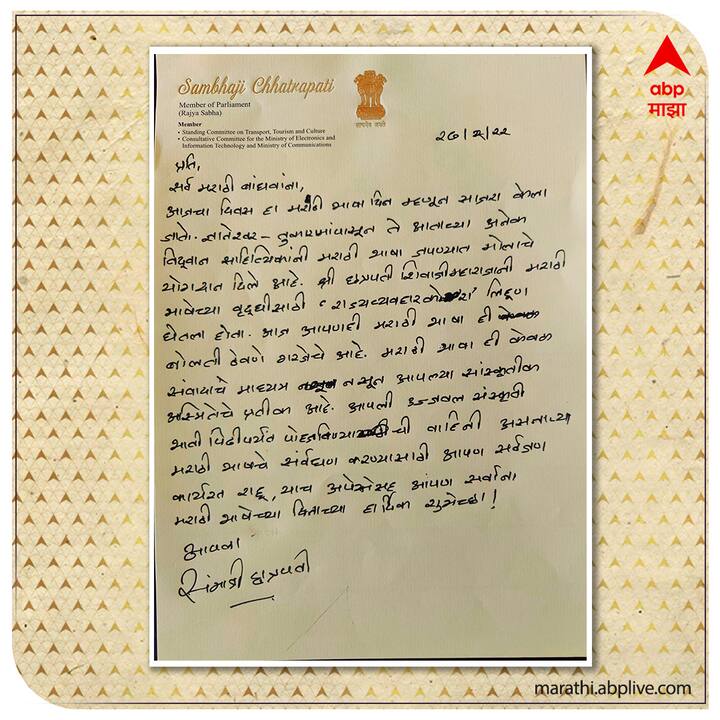 abp
माझा
Sambhaji Chhatrapati
Member of Parliament
(Rajya Sabha)
Member
• Standing Committee on Transport, Tourism and Culture
• Consultative Committee for the Ministry of Electronics and
Information Technology and Ministry of Communications
सत्यमेव जयते
२७/२/२२
प्रति,
सर्व मराठी बांधवांना,
आजचा दिवस हा मराठी भाषा दिन म्हणून साजरा केला
जातो. ज्ञानेश्वर - तुकारामांपासून ते आताच्या अनेक
विद्वान साहित्यिकांनी मराठी भाषा जपण्यात मोलाचे
योगदान दिले आहे. श्री छत्रपती शिवाजी महाराजांनी मराठी
भाषेच्या वृद्धीसाठी 'राज्यव्यवहारकोश' लिहून
घेतला होता. आज आपणही मराठी भाषा ही
बोलती ठेवणे गरजेचे आहे. मराठी भाषा ही केवळ
संवादाचे माध्यम नसून आपल्या सांस्कृतीक
अस्मितेचे प्रतीक आहे. आपली उज्ज्वल संस्कृती
भावी पिढीपर्यंत पोहचविण्याची वाहिनी असलाऱ्या
मराठी भाषेचे संवर्धन करण्यासाठी आपण सर्वजण
कार्यरत राहू, याच अपेक्षेसह आपण सर्वांना
मराठी भाषेच्या दिनाच्या हार्दिक शुभेच्छा!
आपला
संभाजी छत्रपती
marathi.abplive.com